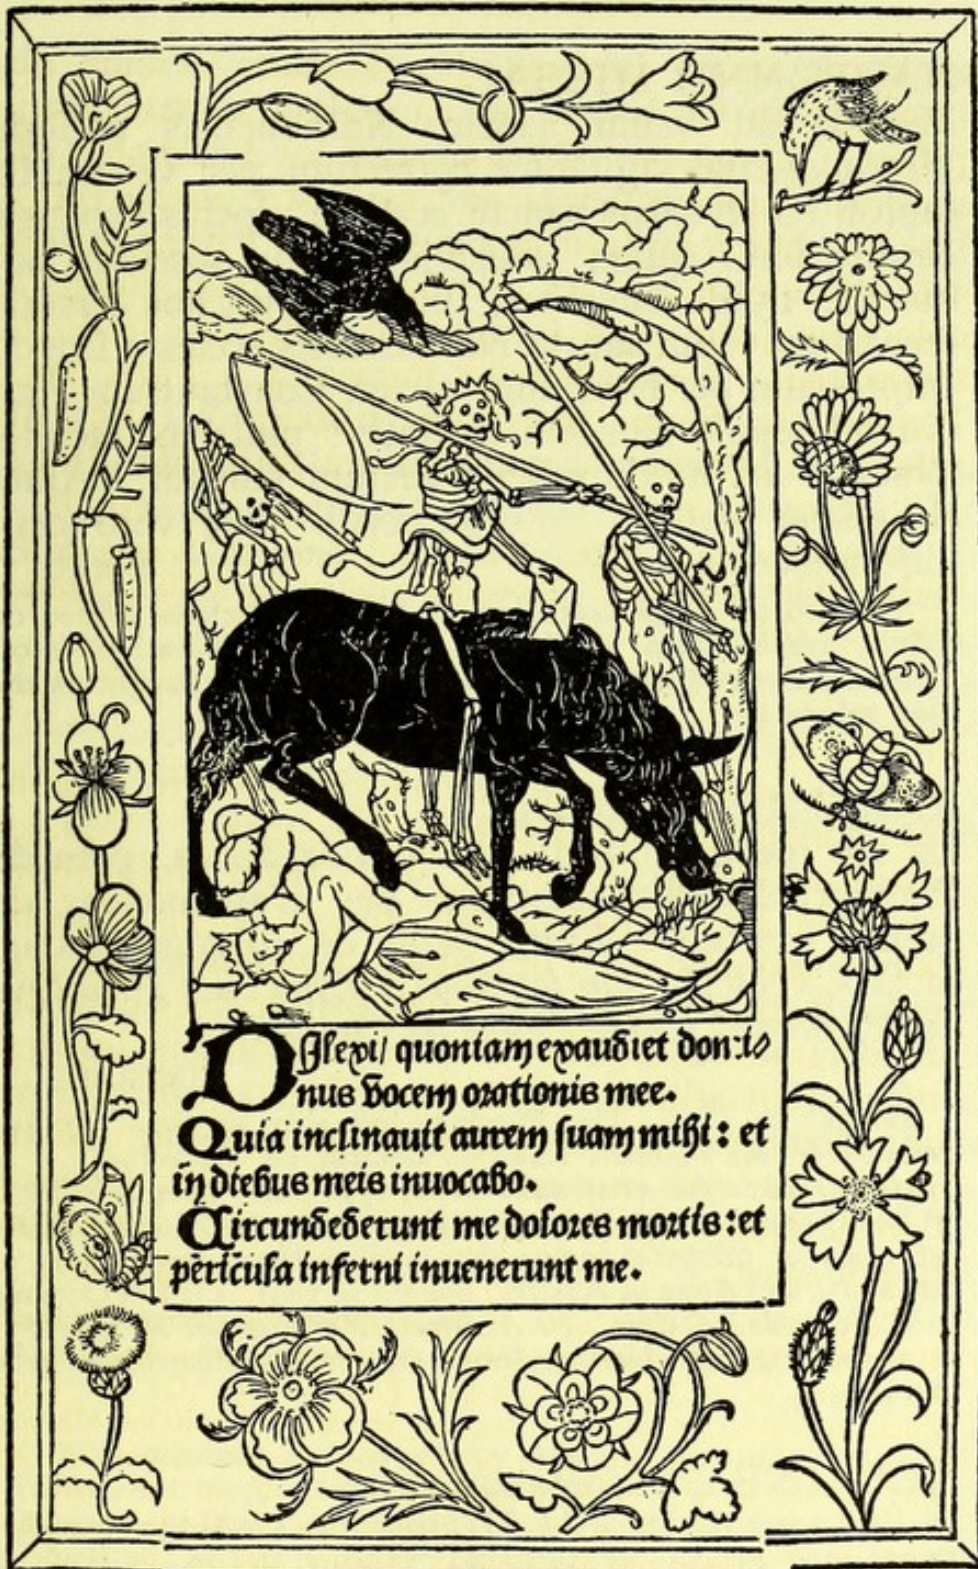 Dilexi/ quoniam exaudiet domi/
nus vocem orationis mee.
Quia inclinauit aurem suam mihi: et
in diebus meis inuocabo.
Circundederunt me dolores mortis: et
pericula inferni inuenerunt me.